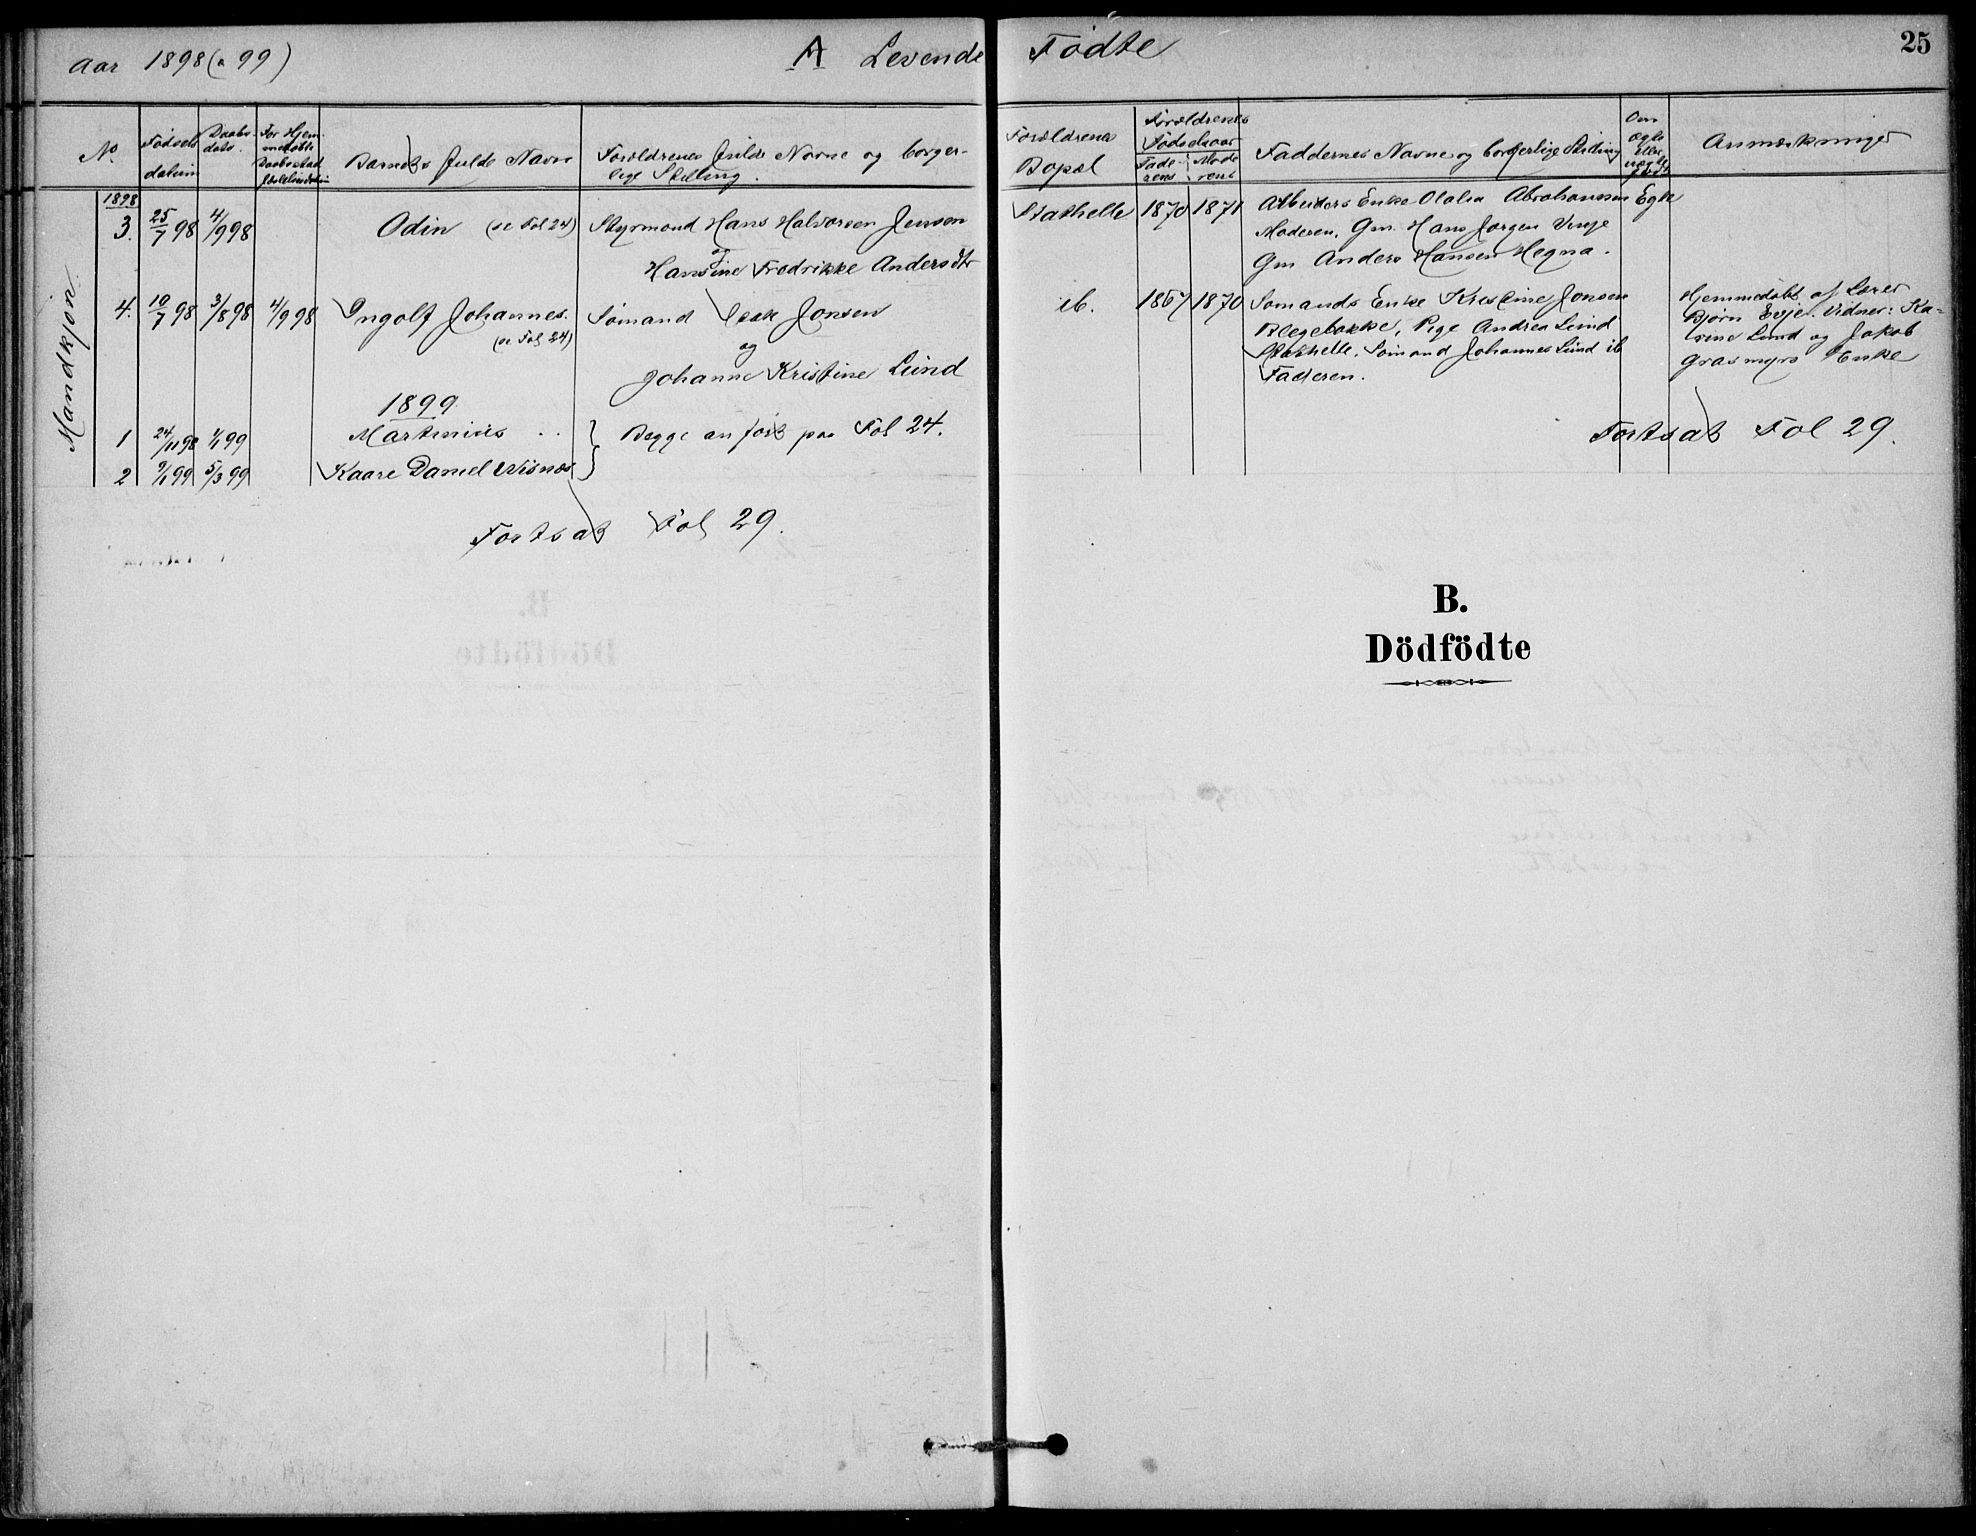 Aar 1898 (a 99) A Levende Födte 25
No. Födsels datum Daabs dato. For Hjemmedöbte Daabsstad Barnets fulde Navn Foreldrenes fulde Navne og borgerlige Stilling. Foreldrenes Bopæl Foreldrenes Födselsaar Faderens Moderens Faddernes Navne og borgerlige Stilling Om Ægte Eller uægte födt Anmærkninger
Mandkjön.
1898
3. 25/7 98 4/9 98 Odin (se Fol 24) Styrmand Hans Halvorsen Jensen Stathelle 1870 1871 Arbeiders Enke Olalia Abrahamsen Egte
og Moderen. Gm. Hans Jørgen Vinje
Hansine Fredrikke Andersdtr Gm Anders Hansen Hegna.
4. 10/7 98 3/8 98 4/9 98 Ingolf Johannes. Sömand Isak Jonsen ib. 1867 1870 Sømands Enke Kristine Jonsen Hjemmedöbt af Lærer
(se Fol 24) og Blegebakke, Pige Andrea Lund Bjørn Evje. Vidner: Ka-
Johanne Kristine Lund Stathelle. Sømand Johannes Lund ib trine Lund og Jakob
Faderen. Grasmyrs Enke
1899
1 24/11 98 1/1 99 Martinius } Begge anført paa Fol 24. Fortsat Fol 29.
2 9/1 99 5/3 99 Kaare Daniel Wisnæs }
Fortsat Fol 29.
B.
Dödfödte